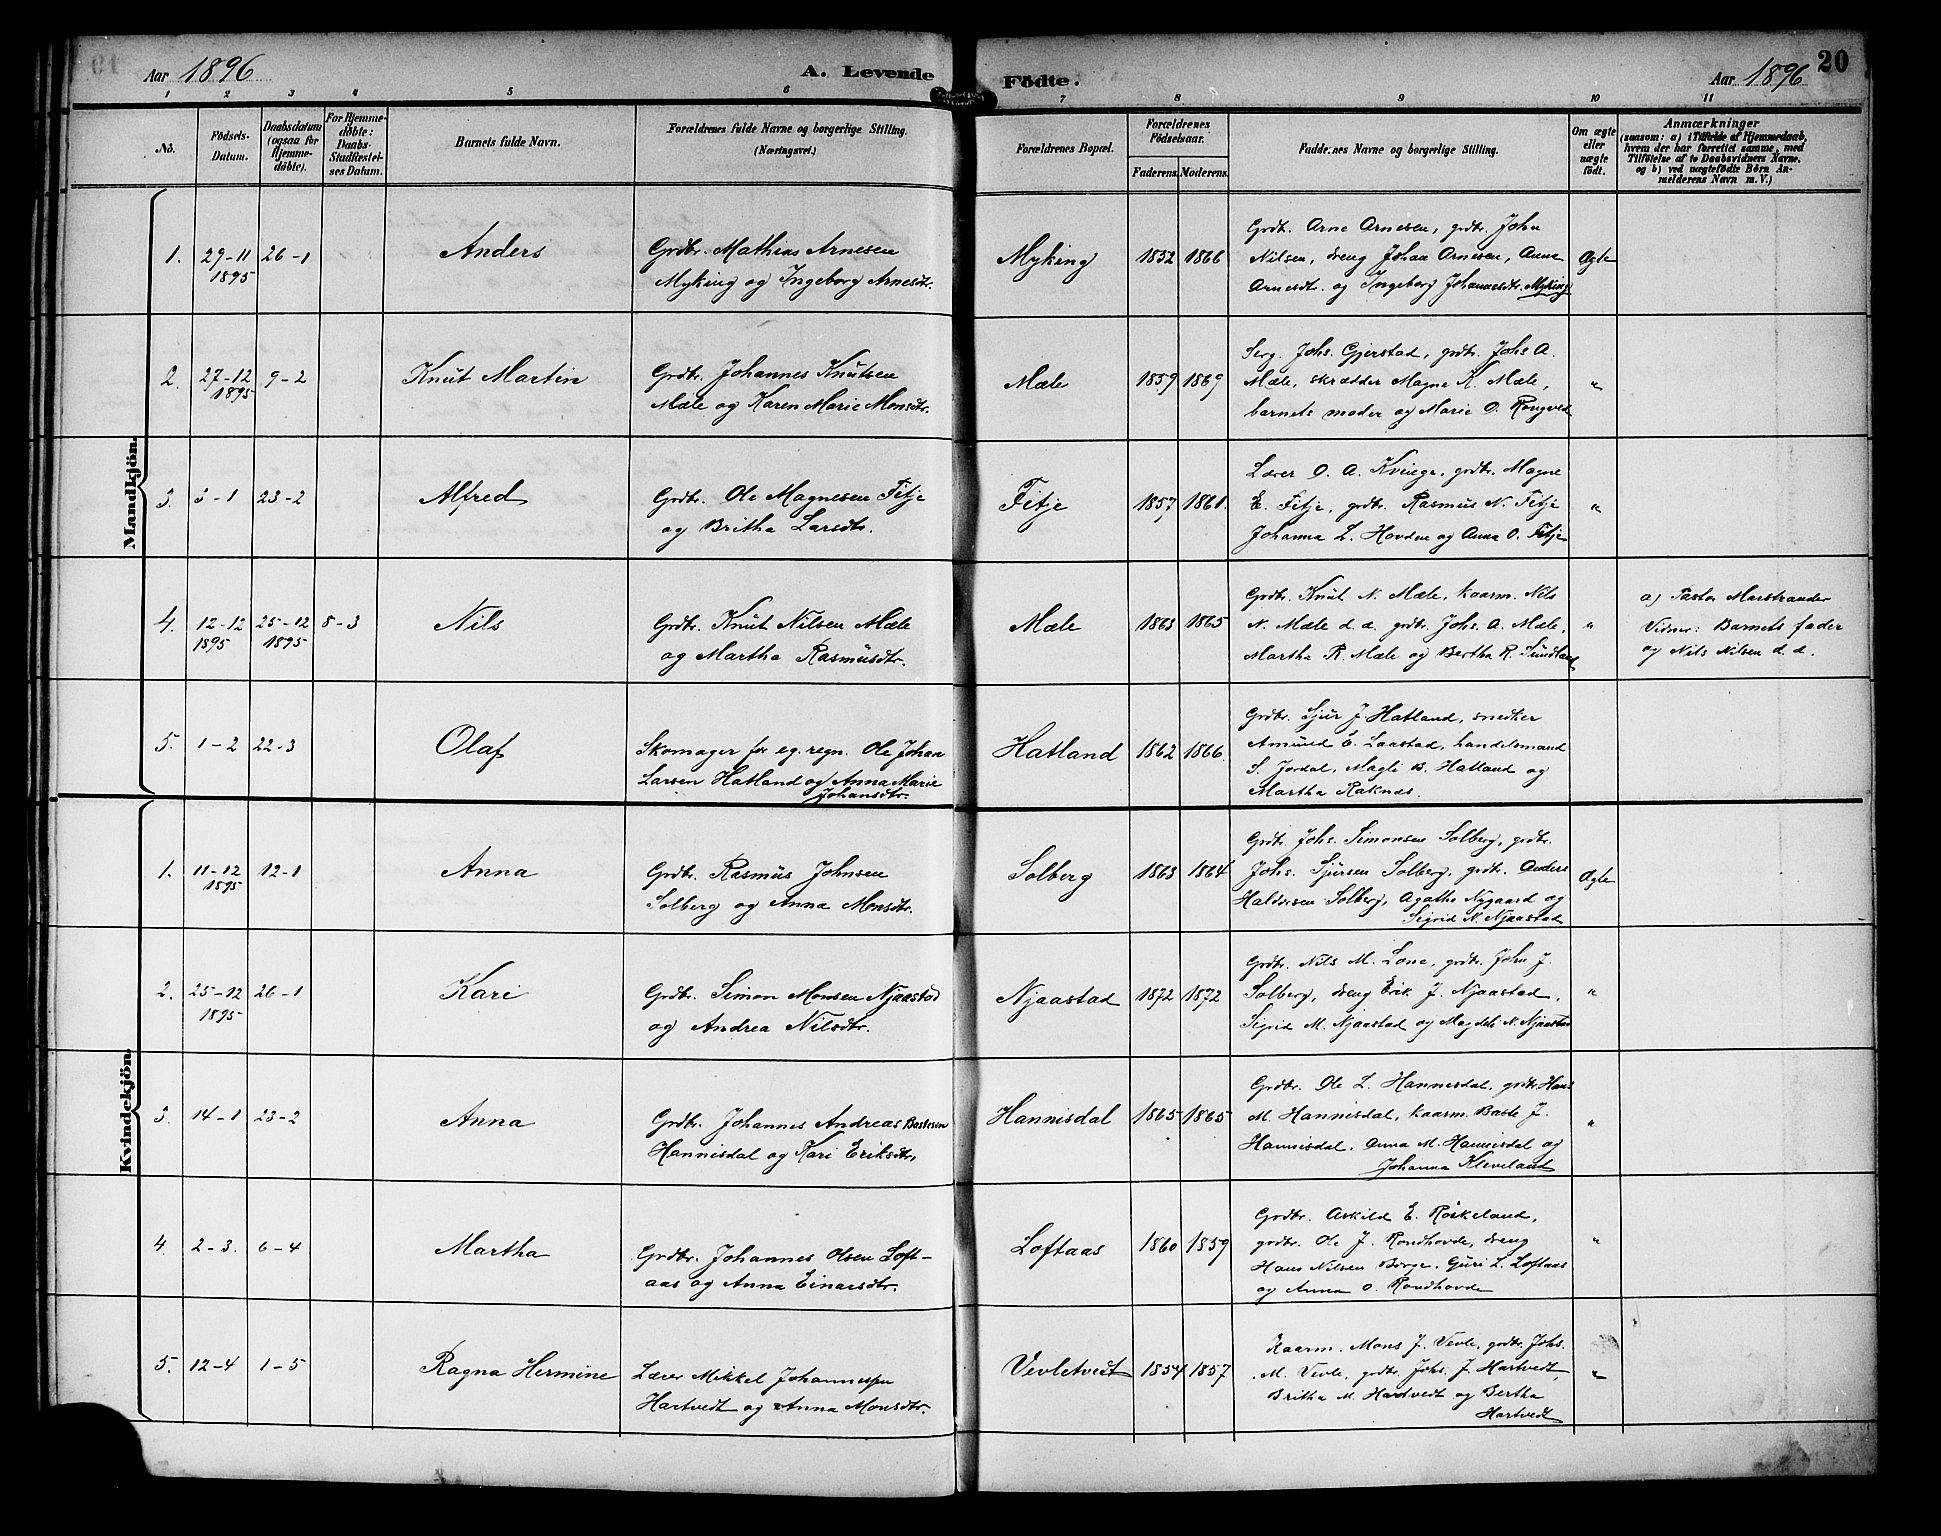 Aar 1896
A. Levende Födte.
Aar 1896
20
1 2 3 4 5 6 7 8 9 10 11
No.
Födsels-
Datum.
Daabsdatum
(ogsaa for
Hjemme-
döbte).
For Hjemme-
döbte:
Daabs-
Stadfæstel-
ses Datum.
Barnets fulde Navn.
Forældrenes fulde Navne og borgerlige Stilling.
(Næringsvei.)
Forældrenes Bopæl.
Forældrenes
Födselsaar.
Faderens. Moderens.
Faddernes Navne og borgerlige Stilling.
Om ægte
eller
uægte
födt.
Anmærkninger
(saasom: a) i Tilfælde af Hjemmedaab,
hvem der har forrettet samme, med
Tilföielse af to Daabsvidners Navne,
og b) ved uægtefödte Börn An-
melderens Navn m. V.)
Mandkjön.
1. 29-11 1895
26-1
Anders
Grdbr. Mathias Arnesen
Myking og Ingeborg Arnesdtr.
Myking
1852 1866
Grdbr. Arne Arnesen, grdbr. John
Nilsen, dreng Johan Arnesen, Anna
Arnesdtr. og Ingeborg Johannesdtr. Myking
Ægte
2. 27-12 1895
9-2
Knut Martin
Grdbr. Johannes Knutsen
Mæle og Karen Marie Monsdtr.
Mæle
1859 1869
Serg. Johs. Gjerstad, grdbr. Johs A.
Mæle, skrædder Magne K. Mæle,
barnets moder og Marie O. Rongved
"
3. 3-1
23-2
Alfred
Grdbr. Ole Magnesen Fitje
og Britha Larsdtr.
Fitje
1857 1861.
Lærer O. A. Kvinge, grdbr. Magne
E. Fitje, grdbr. Rasmus N. Fitje
Johanna L. Hovden og Anna O. Fitje
"
4. 12-12 1895
25-12 1895
8-3
Nils
Grdbr. Knut Nilsen Mæle
og Martha Rasmusdtr.
Mæle
1863 1865
Grdbr. Knut N. Mæle, kaarm. Nils
N. Mæle d. æ. grdbr. Johs. A. Mæle,
Martha R. Mæle og Bertha R. Sundland
"
a) Pastor Marstrander
Vidner: Barnets fader
og Nils Nilsen d. æ.
5. 1-2
22-3
Olaf
Skomager for eg. regn. Ole Johan
Larsen Hatland og Anna Marie
Johansdtr.
Hatland
1862 1866.
Grdbr. Sjur J. Hatland, snedker
Amund E. Laastad, handelsmand
S. Jordal, Magli B. Hatland og
Martha Raknæs.
Kvindekjön.
1. 11-12 1895
12-1
Anna
Grdbr. Rasmus Johnsen
Solberg og Anna Monsdtr.
Solberg
1863 1864
Grdbr. Johs. Simonsen Solberg, grdbr.
Johs. Sjursen Solberg, grdbr. Anders
Haldorsen Solberg, Agathe Nygaard og
Sigrid N. Njaastad
Ægte
2. 25-12 1895
26-1
Kari
Grdbr. Simon Monsen Njaastad
og Andrea Nilsdtr.
Njaastad
1872 1872
Grdbr. Nils M. Lone, grdbr. John J.
Solberg, dreng Erik J. Njaastad,
Sigrid M. Njaastad og Magdeli N. Njaastad
"
3. 14-1
23-2
Anna
Grdbr. Johannes Andreas Bastesen
Hannisdal og Kari Eriksdtr.
Hannisdal
1865 1865
Grdbr. Ole L. Hannesdal, grdbr. Hans
M. Hannisdal, kaarm. Baste J.
Hannisdal, Anna M. Hannisdal og
Johanna Kleveland
"
4. 2-3.
6-4
Martha
Grdbr. Johannes Olsen Loft-
aas og Anna Einarsdtr.
Loftaas
1860 1859
Grdbr. Askild E. Röskeland,
grdbr. Ole J. Rondhovde, dreng
Hans Nilsen Börge, Guri L. Loftaas
og Anna O. Rondhovde
"
5. 12-4
1-5
Ragna Hermine
Lærer Mikkel Johannesen
Hartvedt og Anna Monsdtr.
Vevletvedt
1854 1857
Kaarm. Mons J. Vevle, grdbr. Johs.
M. Vevle, grdbr. Johs. J. Hartvedt,
Britha M. Hartvedt og Bertha
Hartvedt
"